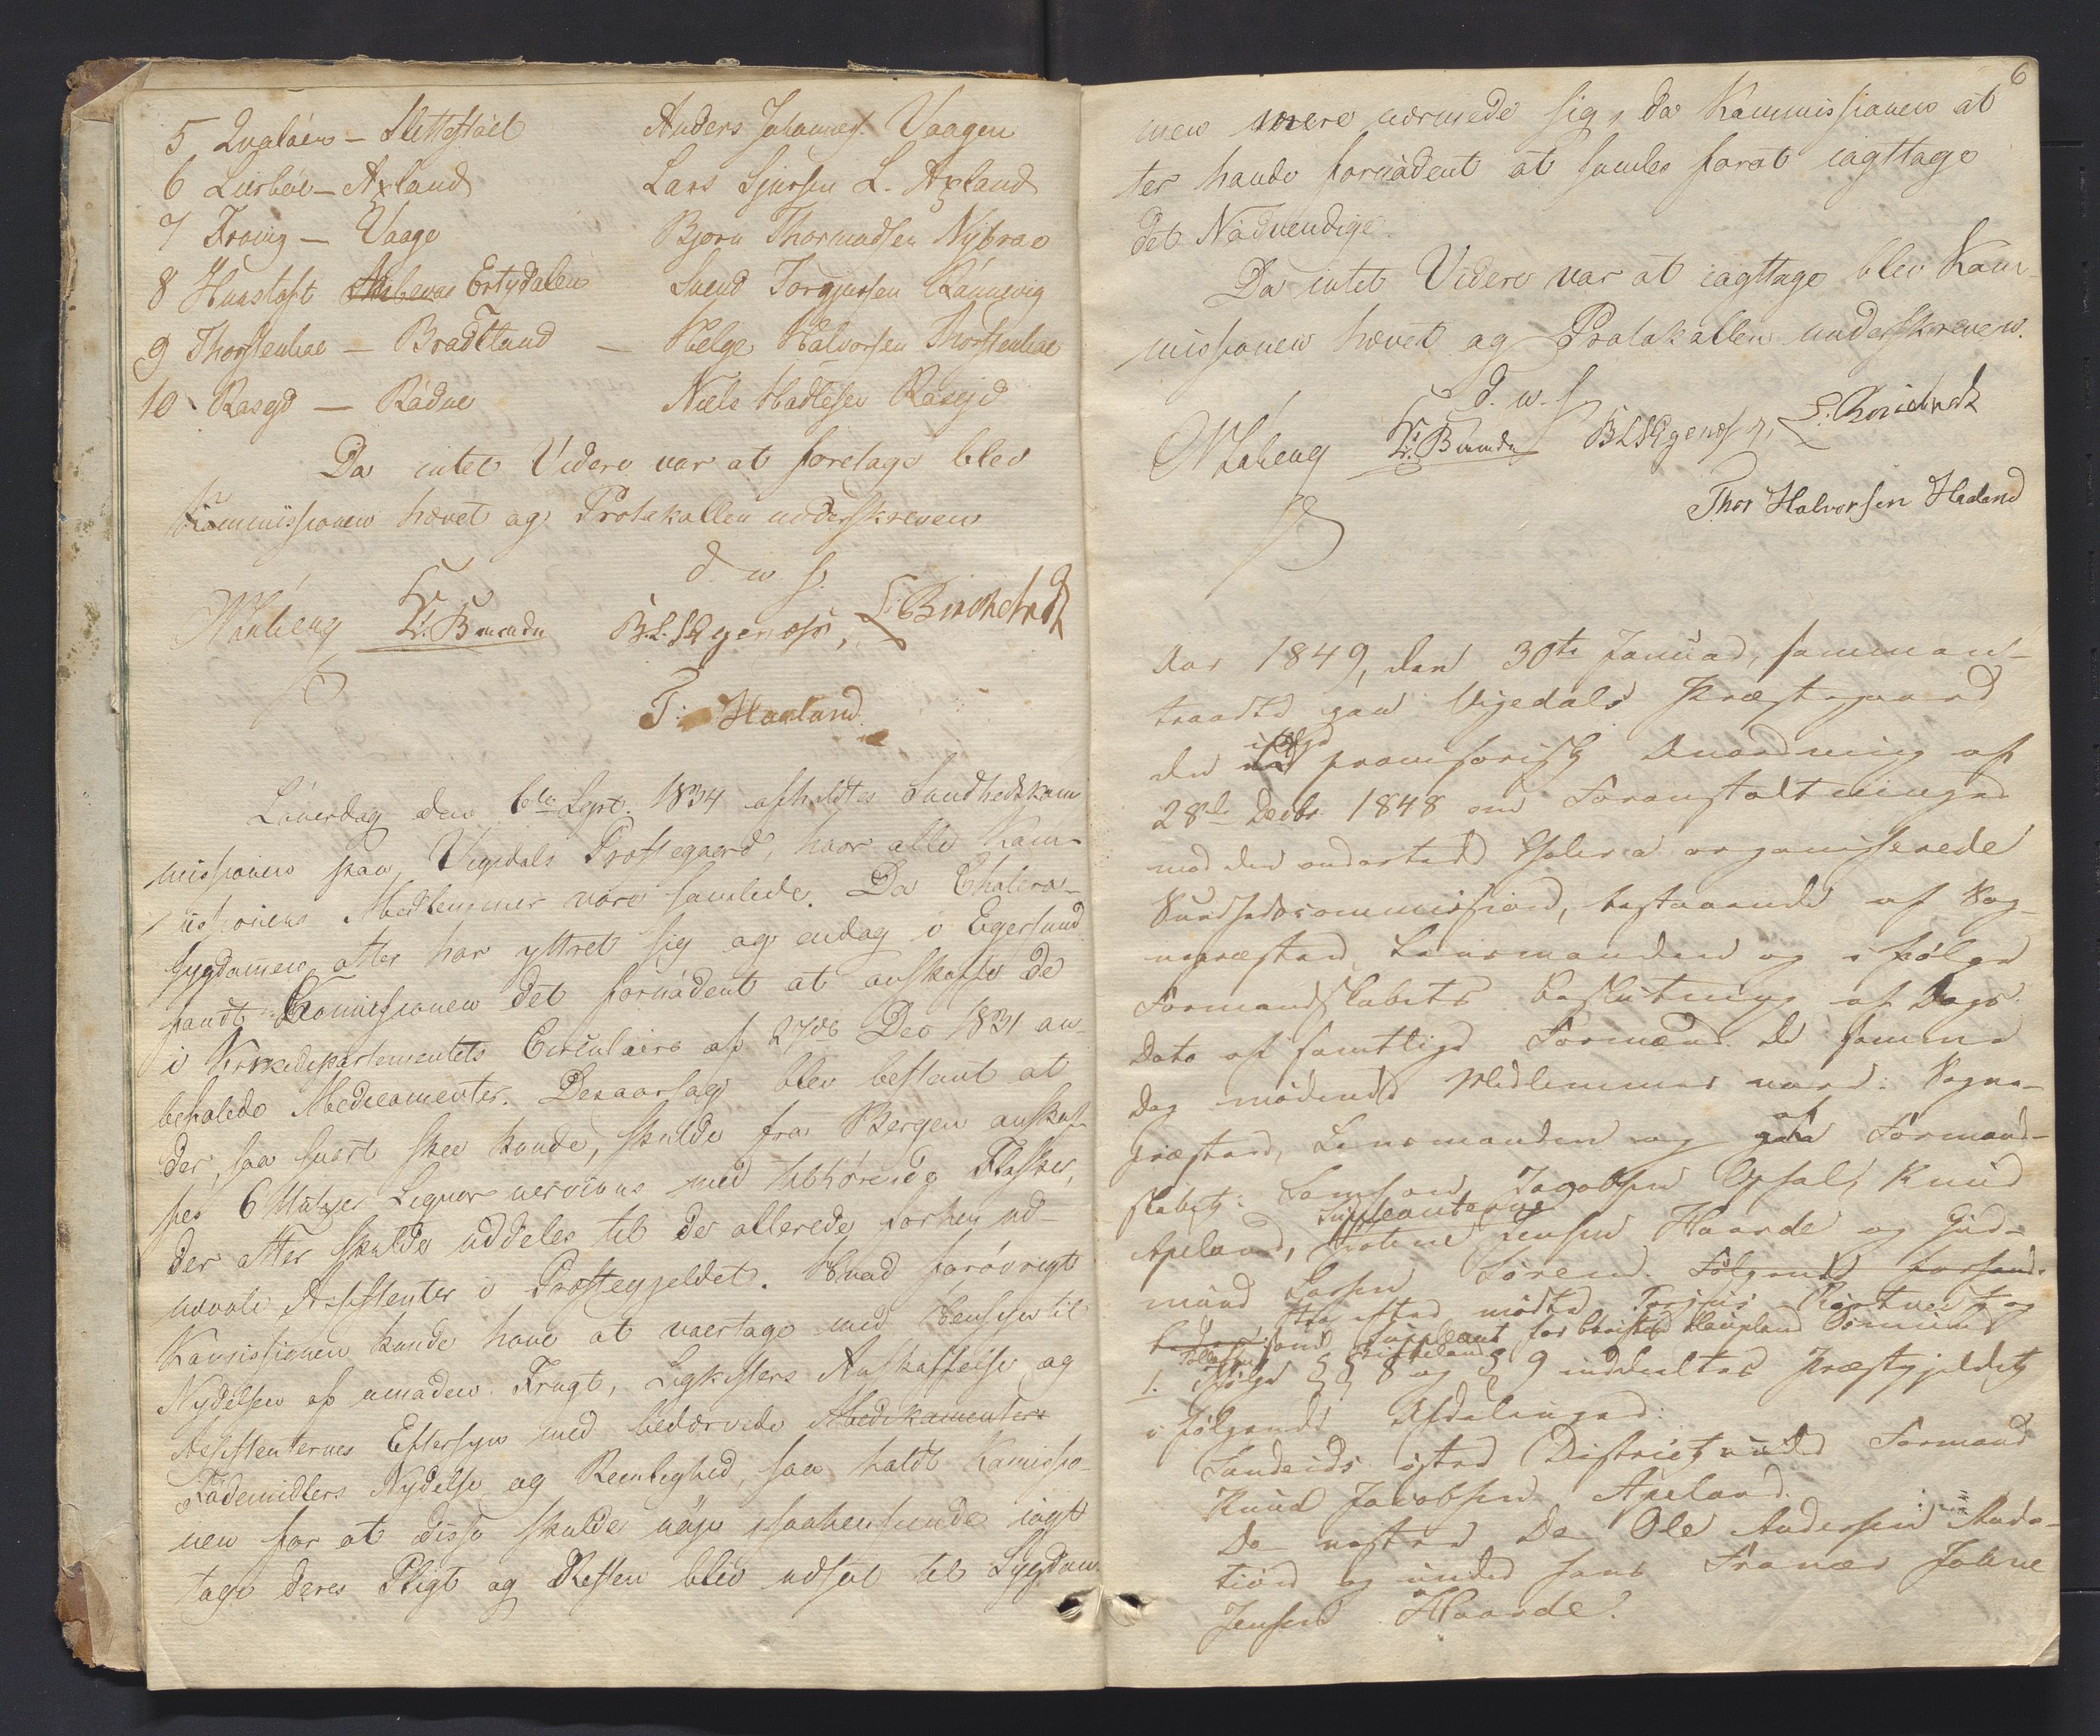 5 Qvaløen - Slettestøel Anders Johannes. Vaagen
6 Lierbøe - Axland Lars Sjursen L. Axland
7 Frøvig - Vaage Bjørn Thormodsen Nybrøe
8 Hustoft Ertzdalen Svend Torgjersen Rønnevig
9 Thorstenbøe - Bradtland - Helge Halvorsen Thorstenbøe
10 Røseyd - Rødne Niels Hadlesen Røseyd
Da intet Videre var at foretage blev
Kommissionen hævet og Protokollen underskreven
d. u. s.
B. L. S. Birkeland
T. Haaland
Löverdag den 6te Sept. 1834 afholdtes Sundhedskom
missionen paa Vigedals Præstegaard, hvor alle Kom-
issionens Medlemmer vare samlede. Da Cholera-
sygdommen atter har yttret sig og endog i Egersund
fandt Commissionen det fornødent at anskaffe de
i Kirkedepartementets Circulaire af 27de Dec 1831 an-
befalede Medicamenter. Desaarsag blev bestemt at
der, saa snart skee kunde, skulde fra Bergen anskaf-
fes 6 Unzer Liquor nervinus med tilhørende Flasker,
der atter skulde uddeles til de allerede forhen ud-
nævnte Assistenter i Præstegjeldet. Hvad forøvrigt
Kommissionen kunde have at iagttage med Hensyn til
Nydelsen af umoden Frugt, Ligkisters Anskaffelse og
Assistenternes Eftersyn med bedærvede Medikamenters
Födemidlers Nydelse og Reenlighed, saa holdt Kommissio-
nen for at disse skulde nøje paahensende iagt
tage deres Pligt og Resten blev udsat til Sygdom-
6
men mere nærmede sig, da Kommissionen at
ter havde fornødent at samles forat iagttage
det Nødvendige.
Da intet Videre var at iagttage blev Kom-
missionen hævet og Protokollen underskreven.
d. u. s.
B L S. Birkeland
Thor Halvorsen Haaland
Aar 1849, den 30te Januar, sammen-
traadte paa Vigedals Præstegaard
den ifølge provisorisk Anordning af
28de Decbr 1848 om Foranstaltninger
mod den ondartede Cholera organiserede
Sundhedscommission, bestaaende af Sog-
nepræsten, Lensmanden og ifølge
Formandskabets Beslutning af Dags
Dato af samtlige Formænd. De samme
Dag mødende Medlemmer vare: Sogne-
præsten, Lensmanden og af Formand-
skabet: Samson Jacobsen Opsal, Knud
Apeland, Suppleanterne Johne Jensen Haarde og Gud-
mund Larsen Søreim. Følgende
efter mødte Torjus
som Suppleant for
1. Ifølge §§ 8 og § 9 inddeltes Præstegjeldet
i følgende Afdelinger:
Sandeids østre District under Formand
Knud Jacobsen Apeland.
Do vestre Do Ole Andersen
og under hans Fravær Johne
Jensen Haarde.